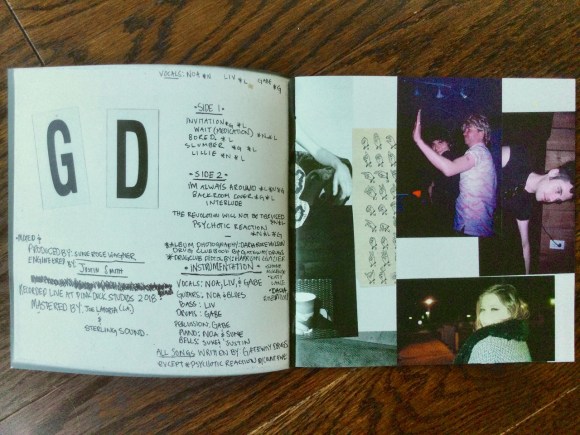 VOCALS: NOA *N LIV *L GABE *G
G D
• SIDE 1 •
INVITATION *G *L
WAIT (MEDICATION) *N *L
BORED *L
SLUMBER *G *L
LILLIE *N *L
• SIDE 2 •
I'M ALWAYS AROUND
BACKROOM *G *L
INTERLUDE
THE REVOLUTION WILL NOT BE
PSYCHOTIC REACTION
*ALBUM PHOTOGRAPHY:
DRUG CLUB
• INSTRUMENTATION •
VOCALS: NOA, LIV, & GABE
GUITARS: NOA &
BASS: LIV
DRUMS: GABE
PERCUSSION: GABE
PIANO: NOA & SUNE
BELLS: SUNE & JUSTIN
ALL SONGS WRITTEN BY GATEWAY DRUGS
EXCEPT *PSYCHOTIC REACTION
MIXED &
PRODUCED BY: SUNE ROSE WAGNER
ENGINEERED BY:
JUSTIN SMITH
RECORDED LIVE AT PINK DUCK STUDIOS 2013
MASTERED BY: THE (LA)
&
STERLING SOUND.